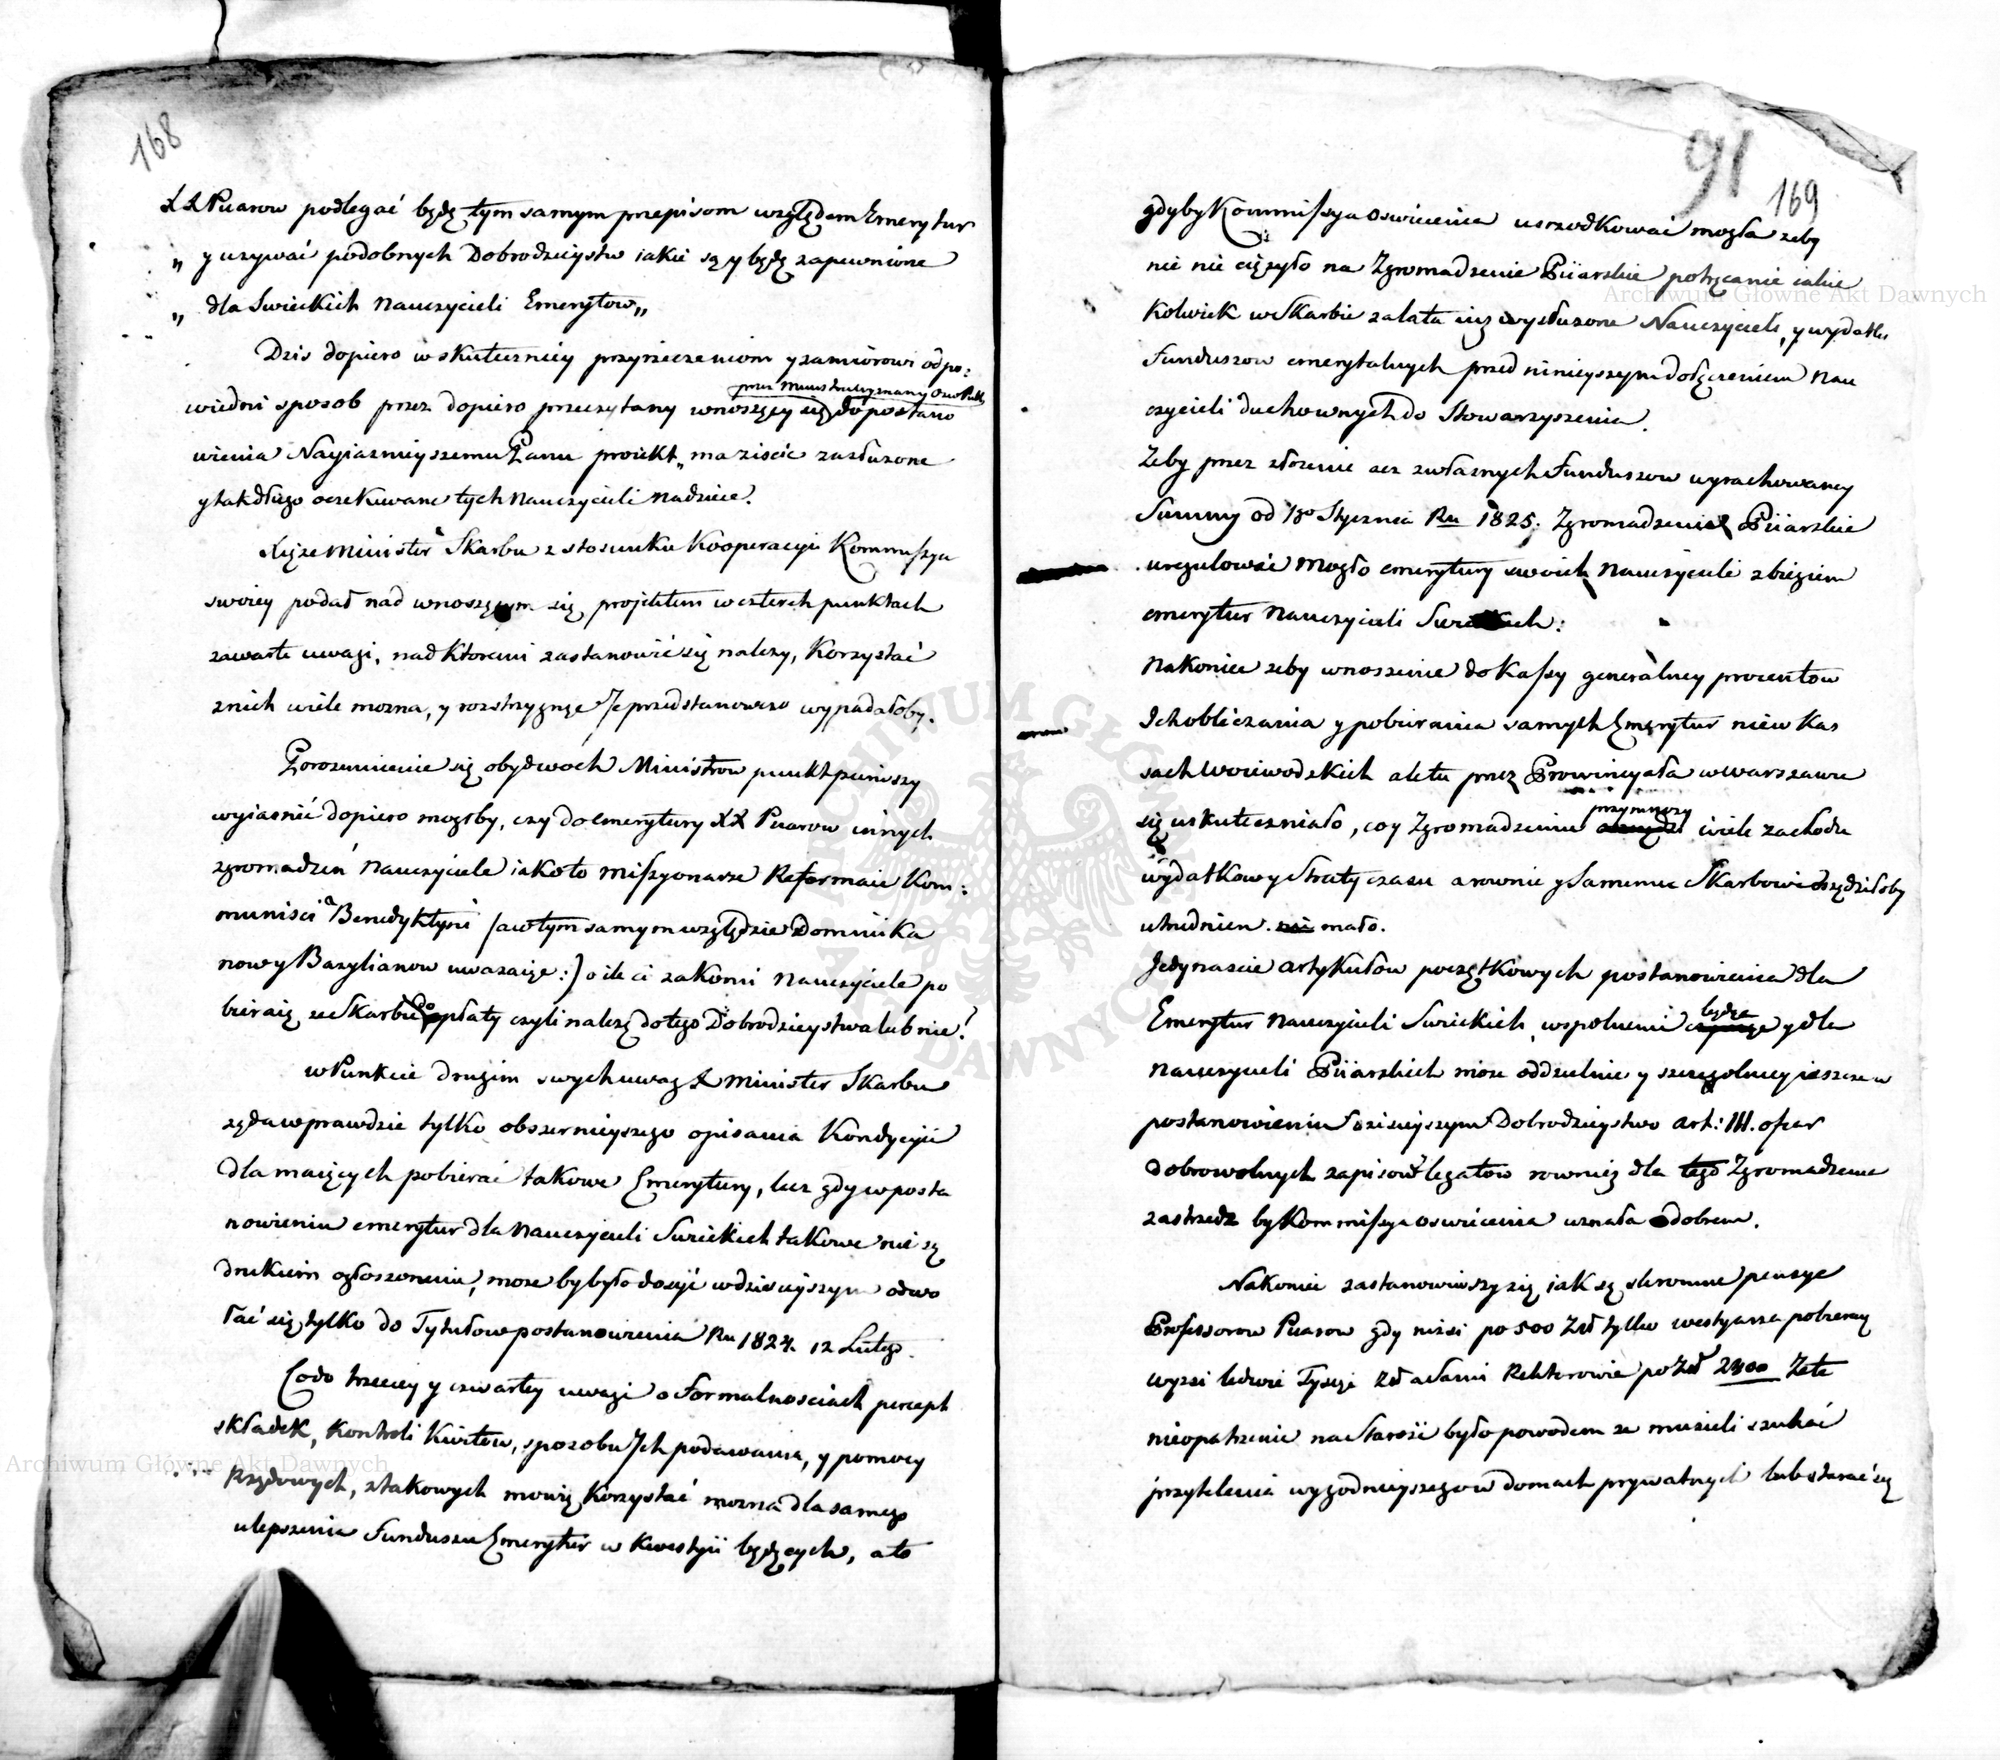 168
XX Puarow podlegać będą tym samym przepisom względem Emerytur
„ y uzywać podobnych Dobrodzieystw iakie są y będą zapewnione
„ dla Swieckich Nauczycieli Emerytow„
Dziś dopiero w skuteczniey przyrzeczeniom y zamiarowi odpo:
przez Ministra
wiedni sposob przez dopiero przeczytany wnoszący się do postano
wienia Nayiasnieyszemu Panu proiekt„ ma ziścić zasłuzone
y tak długo oczekiwane tych Nauczycieli nadzieie.
Xiąze Minister Skarbu z stosunku Kooperacyi Kommissyi
swoiey podał nad wnoszącym się projektem w czterech punktach
zawarte uwagi, nad ktoremi zastanowić się nalezy, Korzystać
z nich wiele mozna, y rozstrzygnąc Je przedstanowczo wypadałoby.
Porozumienie się obydwoch Ministrow punkt pierwszy
wyiasnić dopiero mogłby, czy do emerytury XX Puarow innych
zgromadzeń Nauczyciele iakoto Missyonarze Reformaci Kom:
muniści Benedyktyni /a w tym samym względzie Dominika
now y Bazylianow uwazaiąc:/ o ile ci zakonni Nauczyciele po
bieraią ze Skarbu opłaty czyli nalezą do tego Dobrodzieystwa lub nie?
w Punkcie drugim swych uwag X Minister Skarbu
ząda wprawdzie tylko obszernieyszego opisania Kondycyi
dla maiących pobierać takowe Emerytury, lecz gdy w posta
nowieniu emerytur dla Nauczycieli Swieckich takowe nie są
drukiem ogłoszonemi, moze by było dosyć w dzisieyszym odwo
łać się tylko do Tytułow postanowienia Ru 1824. 12 Lutego.
Co do trzeciey y czwartey uwagi o formalnosciach percept
składek, Kontroli Kwitow, sposobu Ich podawania, y pomocy
Rządowych, z takowych mowię Korzystać mozna dla samego
ulepszenia Funduszu Emerytur w Kwestyi będących, a to
91
169
gdyby Kommissya Oswiecenia uszrodkować mogła zeby
nic nie ciązyło na Zgromadzenie Piiarskie potrącanie iakie
kolwiek w Skarbie za lata iuz wysłuzone Nauczycieli, y wydatki
Funduszow emerytalnych przed ninieyszym dołączeniem Nau
czycieli duchownych do Stowarzyszenia.
Zeby przez złozenie z własnych Funduszow wyrachowaney
Summy od 1go Stycznia Ru 1825. Zgromadzenie Piiarskie
uregulować mogło emerytury swoich Nauczycieli z biegiem
emerytur Nauczycieli Swieckich:
Nakoniec zeby wnoszenie do Kassy generalney procentow
Ich obliczania y pobierania samych Emerytur nie w Kas
sach Woiewodzkich ale tu przez Prowincyała w Warszawie
przymnozy
się uskuteczniało, co y Zgromadzeniu wiele zachodu
wydatkow y straty czasu a rownie y samemu Skarbowi oszczędziłoby
utrudnien. mało.
Jedynaście artykułow początkowych postanowienia dla
będące
Emerytur Nauczycieli Swieckich, wspolnemi y dla
Nauczycieli Piiarskich moze oddzielnie y szczegolniey ieszcze w
postanowieniu dzisieyszym Dobrodzieystwo art: III. ofiar
dobrowolnych zapisow legatow rowniez dla tego Zgromadzenia
zastrzedz by Kommissya oswiecenia uznała dobrem.
Nakoniec zastanowiwszy się, jak są skromne pensye
Professorow Puarow gdy nizsi po 500 Zł tylko westyarza pobieraią
wyzsi ledwie Tysiąc Zł a sami Rektorowie po Zł 2400 Ze te
nieopatrzenie na starosc było powodem ze musieli szukać
przytulenia wygodnieyszego w domach prywatnych lub starać się
Archiwum Główne Akt Dawnych
Archiwum Główne Akt Dawnych
ARCHIWUM GŁÓWNE AKT DAWNYCH